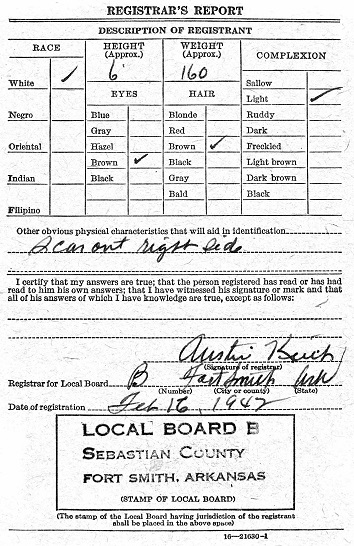 REGISTRAR'S REPORT
DESCRIPTION OF REGISTRANT
RACE HEIGHT (Approx.) WEIGHT (Approx.) COMPLEXION
6' 160
White ✓ Sallow
EYES HAIR Light ✓
Negro Blue Blonde Ruddy
Gray Red Dark
Oriental Hazel Brown ✓ Freckled
Brown ✓ Black Light brown
Indian Black Gray Dark brown
Bald Black
Filipino
Other obvious physical characteristics that will aid in identification
Scar ont right side
I certify that my answers are true; that the person registered has read or has had
read to him his own answers; that I have witnessed his signature or mark and that
all of his answers of which I have knowledge are true, except as follows:
Austin
(Signature of registrar)
Registrar for Local Board B Fort Smith Ark
(Number) (City or county) (State)
Date of registration Feb 16, 1942
LOCAL BOARD B
SEBASTIAN COUNTY
FORT SMITH, ARKANSAS
(STAMP OF LOCAL BOARD)
(The stamp of the Local Board having jurisdiction of the registrant
shall be placed in the above space)
16—21630-1